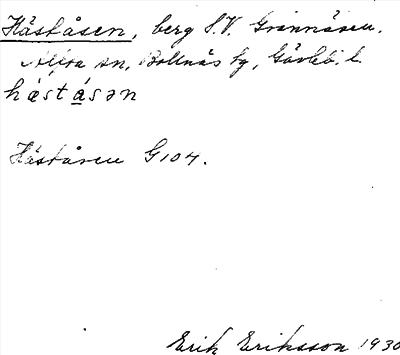 Håståsen, berg S.V. Grännåsen.
Alfta sn, Bollnäs tg, Gävleb. l.
håstásən
Håståsen G104.
Erik Eriksson 1930